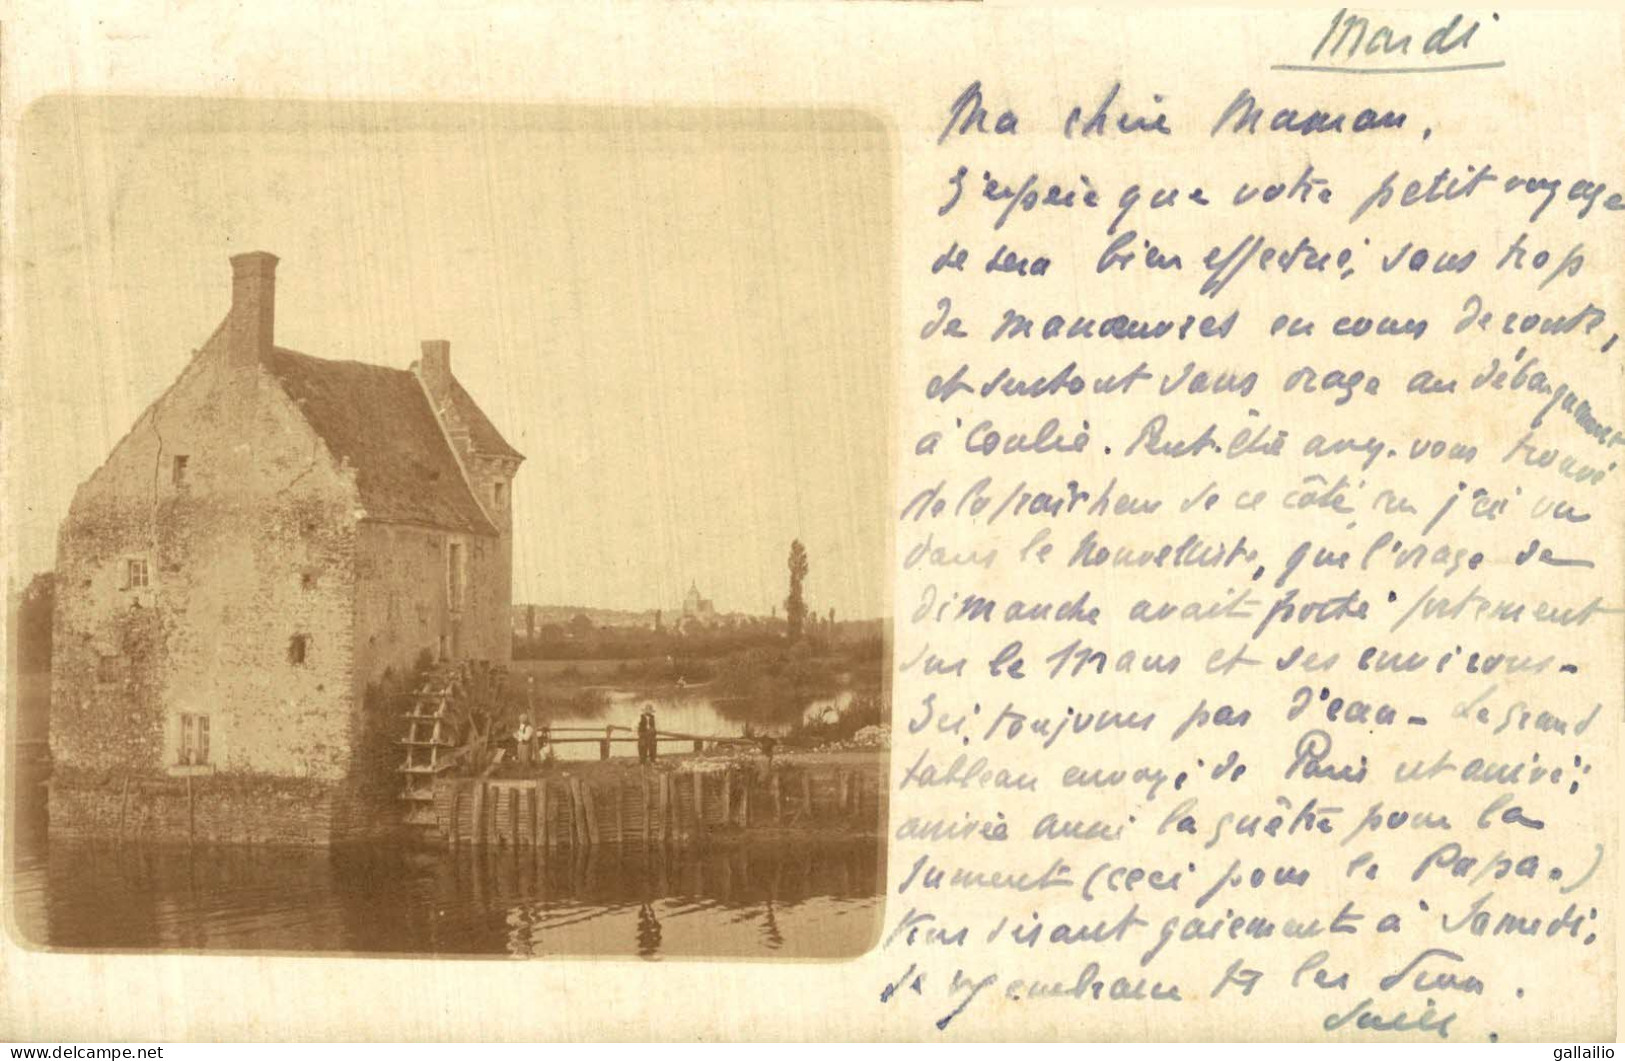 Mardi
Ma chère Maman,
J'espère que votre petit voyage
se sera bien effectué, sans trop
de manœuvres en cours de route,
et surtout sans orage au débarquement
à Conlie. Peut-être avez-vous trouvé
de la fraîcheur de ce côté, car j'ai vu
dans le Nouvelliste, que l'orage de
dimanche avait porté fortement
sur le Mans et ses environs-
Ici, toujours pas d'eau- Le grand
tableau envoyé de Paris est arrivé;
arrivée aussi la guêtre pour la
jument (ceci pour le Papa.)
disant gaiement à Samedi,
je vous embrasse les deux.
gallailio @ www.delcampe.net